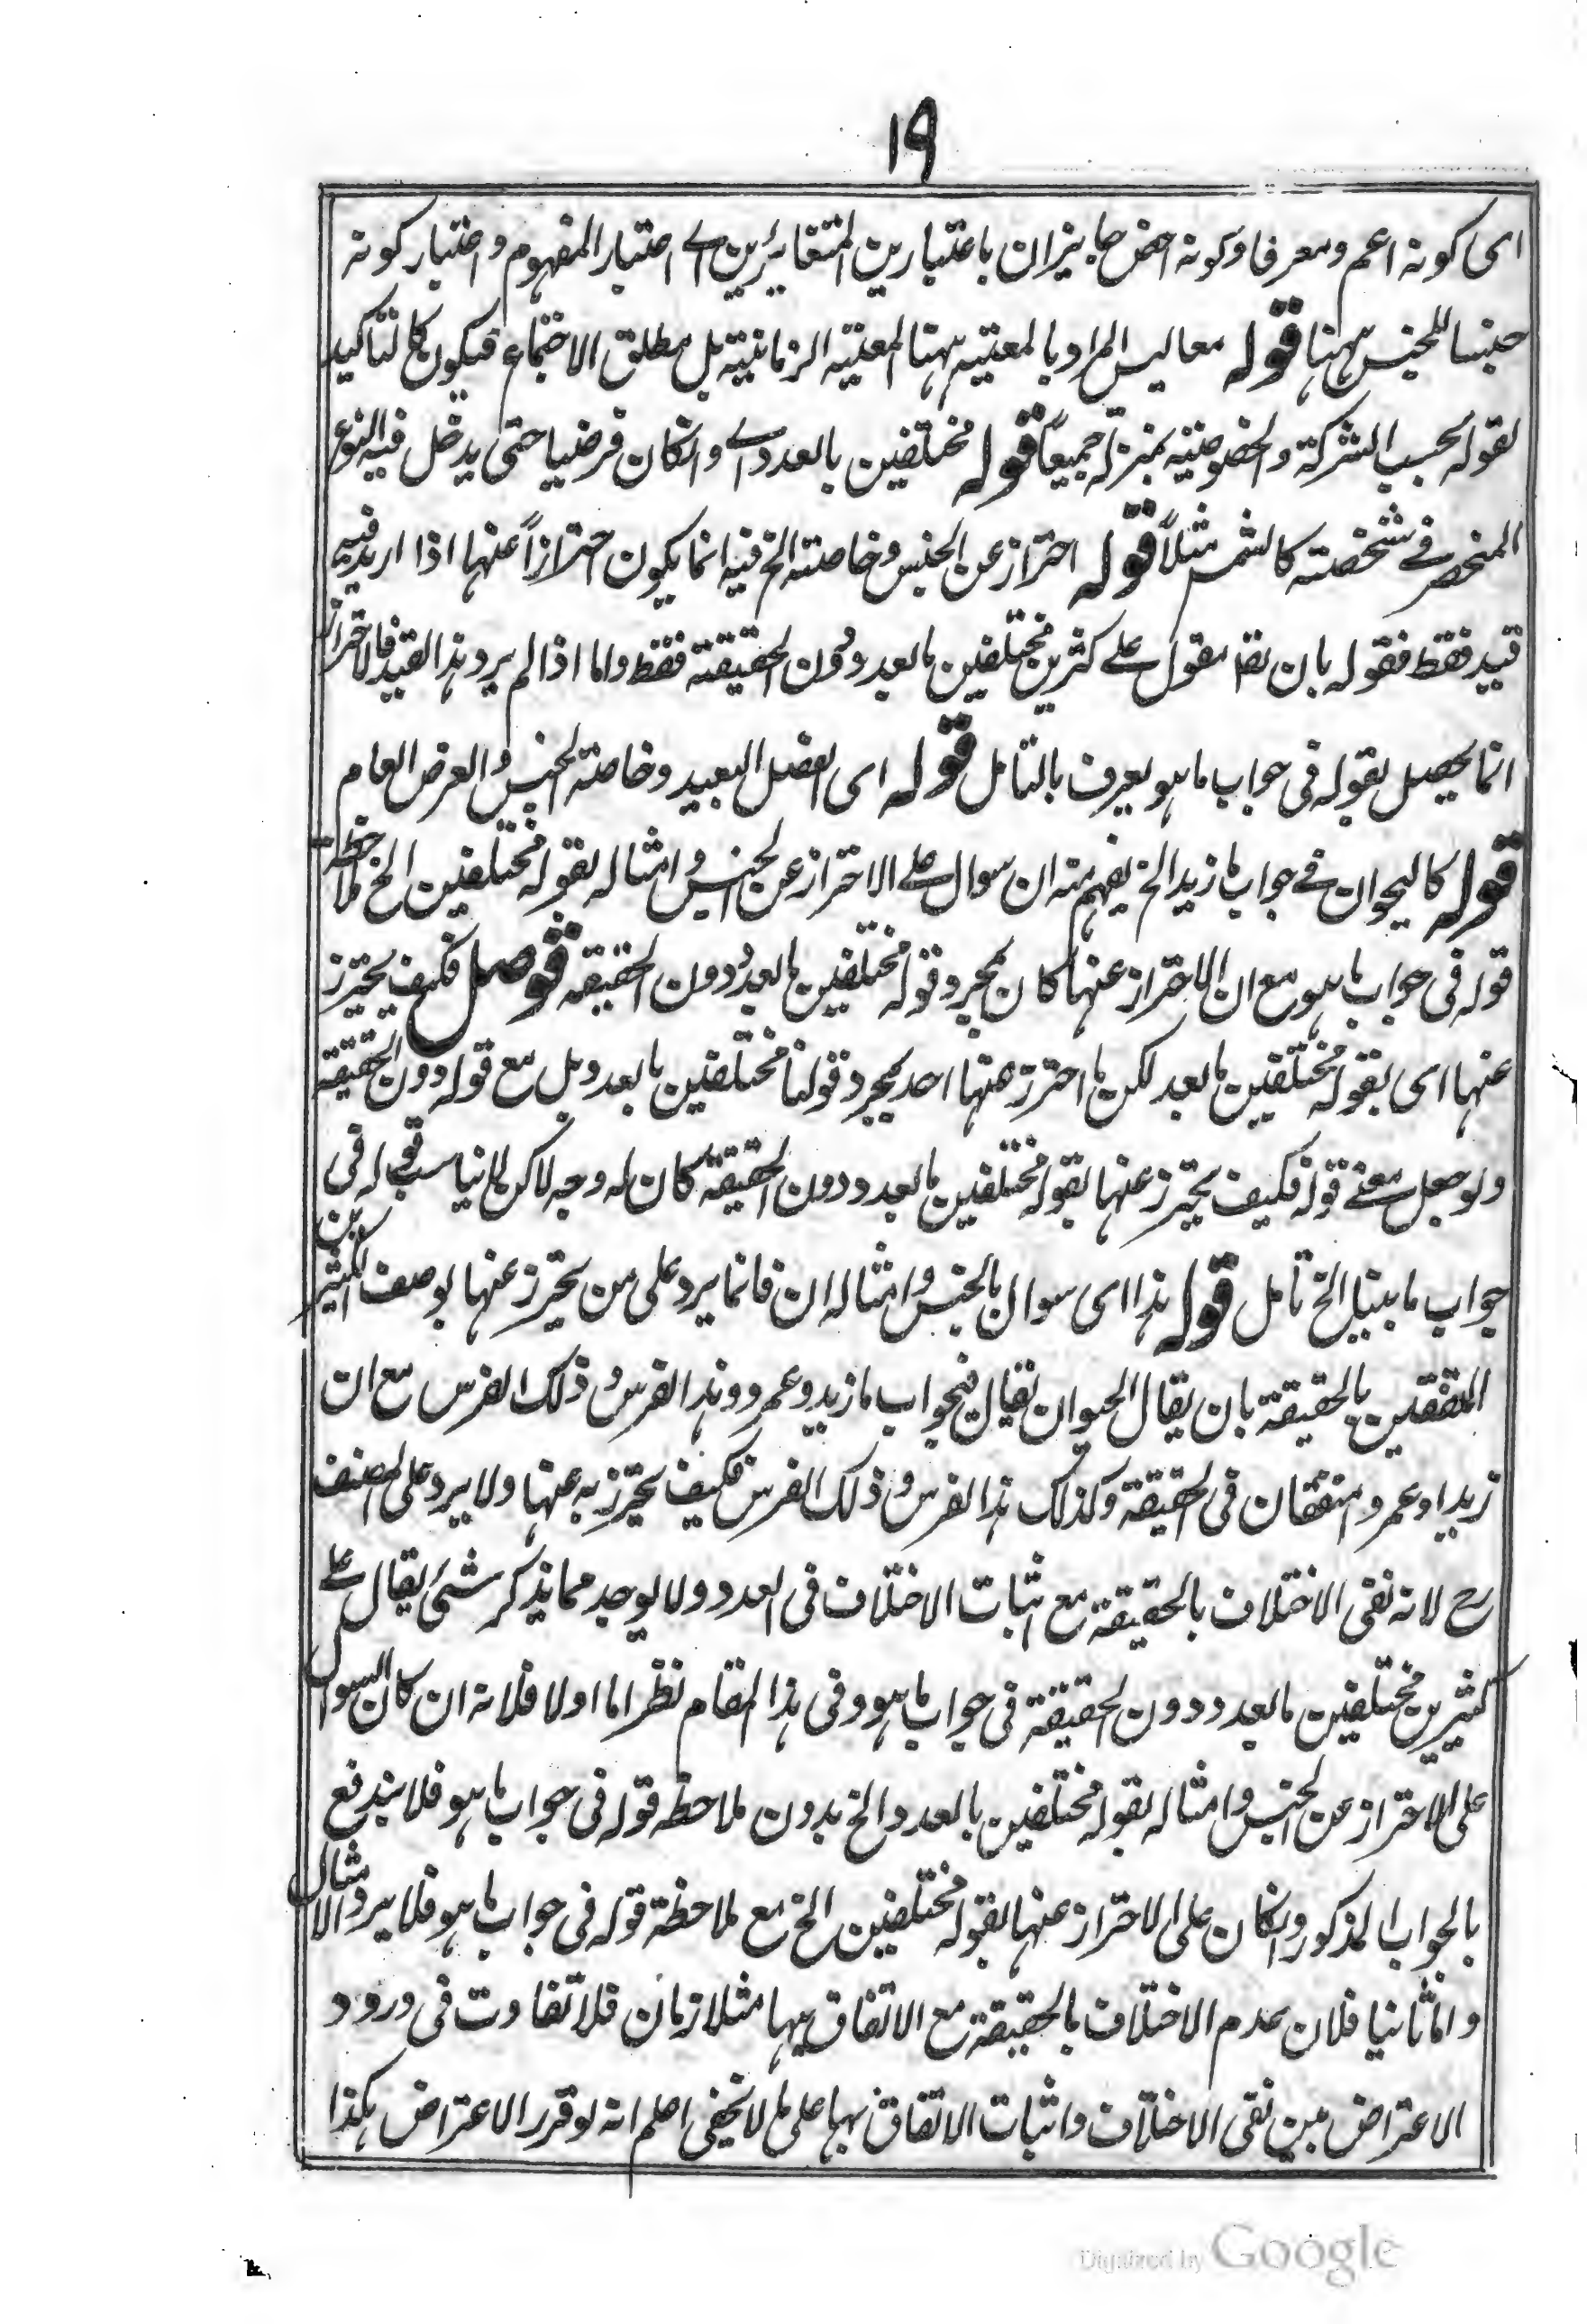 ١٩
اى كونه اعم ومعرفا وكونه اخص جايزان باعتبارين المتغايرين اے اعتبار المفهوم واعتبار كونه
جنسا للجنس ههنا قوله معا ليس المراد بالمعية ههنا المعية الزمانية بل مطلق الاجتماع فيكون كالتاكيد
لقوله بحسب الشركة والخصوصية بمنزلة جميعاً قوله مختلفين بالعدد اے وانكان فرضيا حتى يدخل فيه النوع
المنحصر فے شخصته كالشمس مثلاً قوله احتراز عن الجنس وخاصته الخ فيه انما يكون احترازاً عنها اذا اريد فيه
قيد فقط فقوله بان يقا مقول علے كثيرين مختلفين بالعدد دون الحقيقة فقط واما اذا لم يرد هذا القيد فالاحتراز
انما يحصل بقوله فى جواب ما هو يعرف بالتامل قوله اى الفصل البعيد وخاصته الجنس والعرض العام
قوله كالحيوان فے جواب ما زيد الخ يفهم منه ان سوال علے الاحتراز عن الجنس وامثاله بقوله مختلفين الخ ملاحظة
قوله فى جواب ما هو مع ان الاحتراز عنها كان بمجرد قوله مختلفين بالعدد دون الحقيقه قوصل فكيف يحترز
عنها اى بقوله مختلفين بالعدد لكن ما احترز عنها احد بمجرد قولنا مختلفين بالعدد بل مع قوله دون الحقيقة
ولو جعل معنے قوله فكيف يحترز عنها بقوله مختلفين بالعدد دون الحقيقة كان له وجه لاكن لا يناسب قوله فى
جواب ما بينا الخ تامل قوله هذا اى سوال بالجنس وامثاله ان فانما يرد على من يحترز عنها بوصف الكثيرين
المتفقين بالحقيقة بان يقال الحيوان يقال فى جواب ما زيد وعمرو وهذا الفرس وذلك الفرس مع ان
زيدا وعمرو امتفقان فى الحقيقة وكذلك هذا الفرس وذلك الفرس فكيف يحترز به عنها ولا يرد على المصنف
رح لانه نفى الاختلاف بالحقيقة مع اثبات الاختلاف فى العدد ولا يوجد مما يذكر شئ يقال علے
كثيرين مختلفين بالعدد دون الحقيقة فى جواب ما هو وفى هذا المقام نظر اما اولا فلانه ان كان السوال
على الاحتراز عن الجنس وامثاله بقوله مختلفين بالعدد الخ بدون ملاحظه قوله فى جواب ما هو فلا يندفع
بالجواب المذكور وانكان على الاحتراز عنها بقوله مختلفين الخ مع ملاحظة قوله فى جواب ما هو فلا يرد الامثال
واما ثانيا فلان عدم الاختلاف بالحقيقة مع الاتفاق بها متلازمان فلا تفاوت فى ورود
الاعتراض بين نفى الاختلاف واثبات الاتفاق بها على ما لا يخفى اعلم انه لو قرر الاعتراض هكذا
Digitized by Google